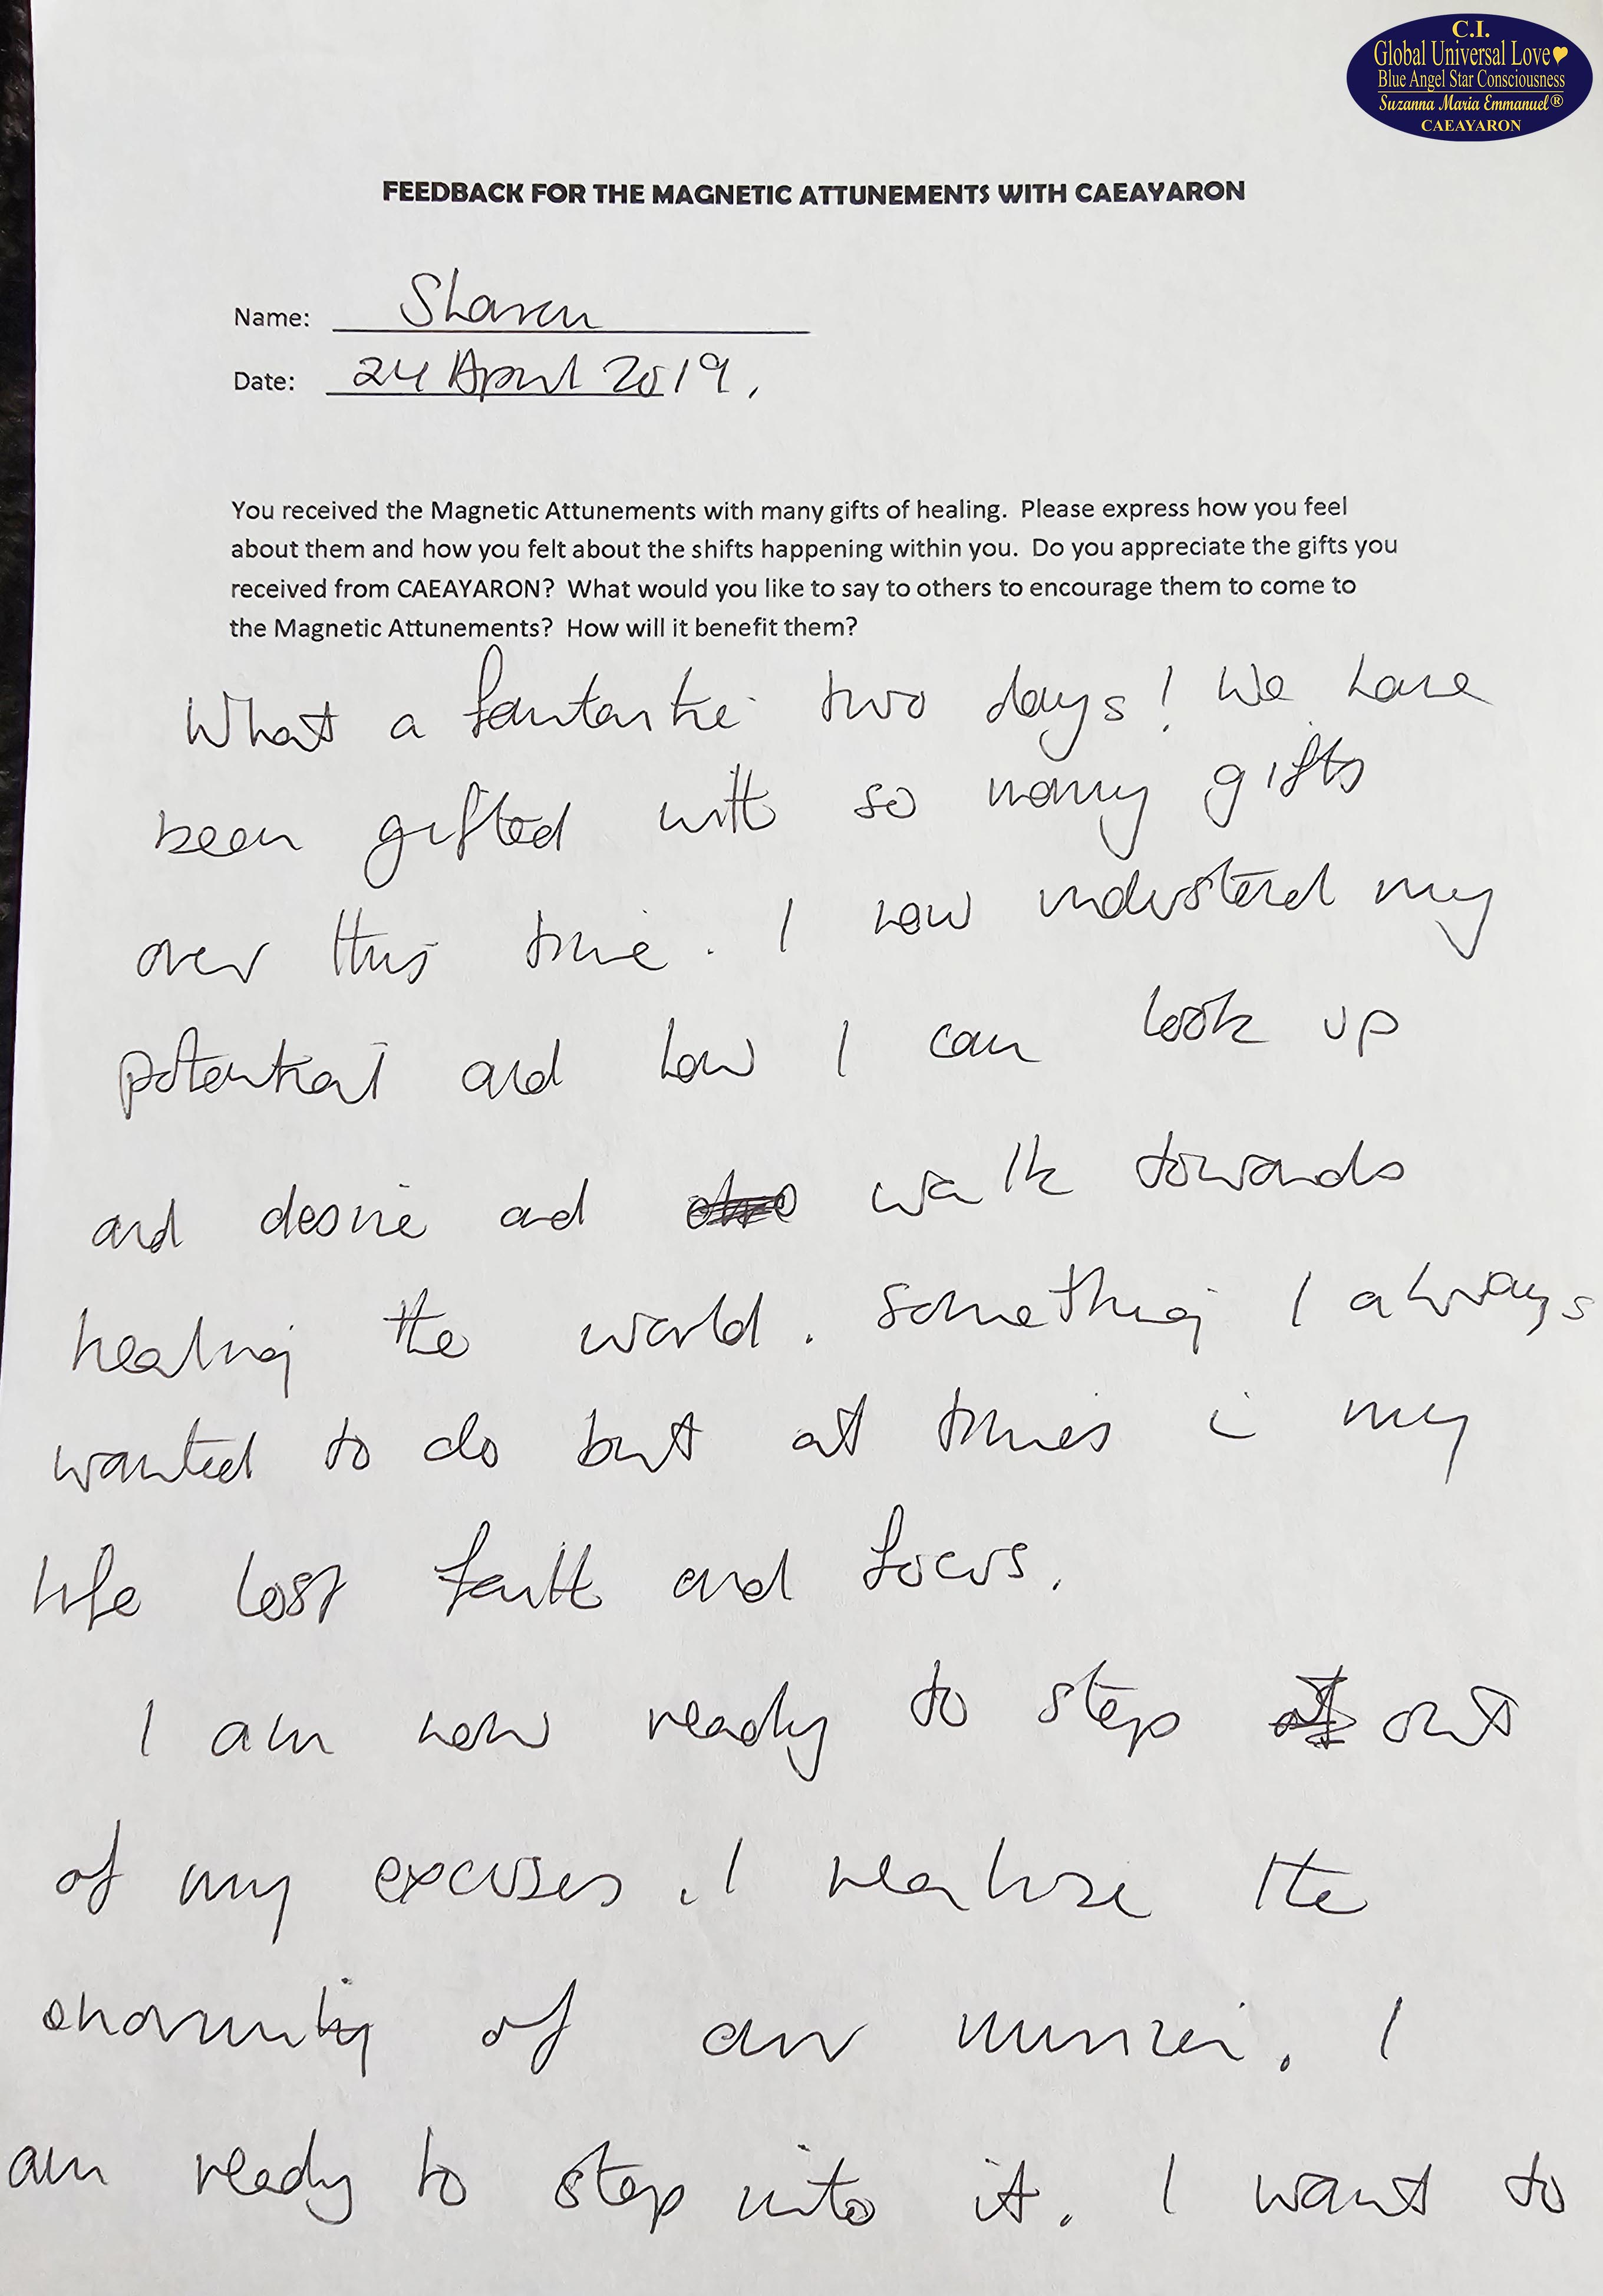 C.I.
Global Universal Love
Blue Angel Star Consciousness
Suzanna Maria Emmanuel®
CAEAYARON
FEEDBACK FOR THE MAGNETIC ATTUNEMENTS WITH CAEAYARON
Name: Sharon
Date: 24 April 2019.
You received the Magnetic Attunements with many gifts of healing. Please express how you feel
about them and how you felt about the shifts happening within you. Do you appreciate the gifts you
received from CAEAYARON? What would you like to say to others to encourage them to come to
the Magnetic Attunements? How will it benefit them?
What a fantastic two days! We have
been gifted with so many gifts
over this time. I now understand my
potential and how I can look up
and desire and walk towards
healing the world. Something I always
wanted to do but at times in my
life lost faith and focus.
I am now ready to step out
of my excuses. I realise the
enormity of our mission. I
am ready to step into it. I want to